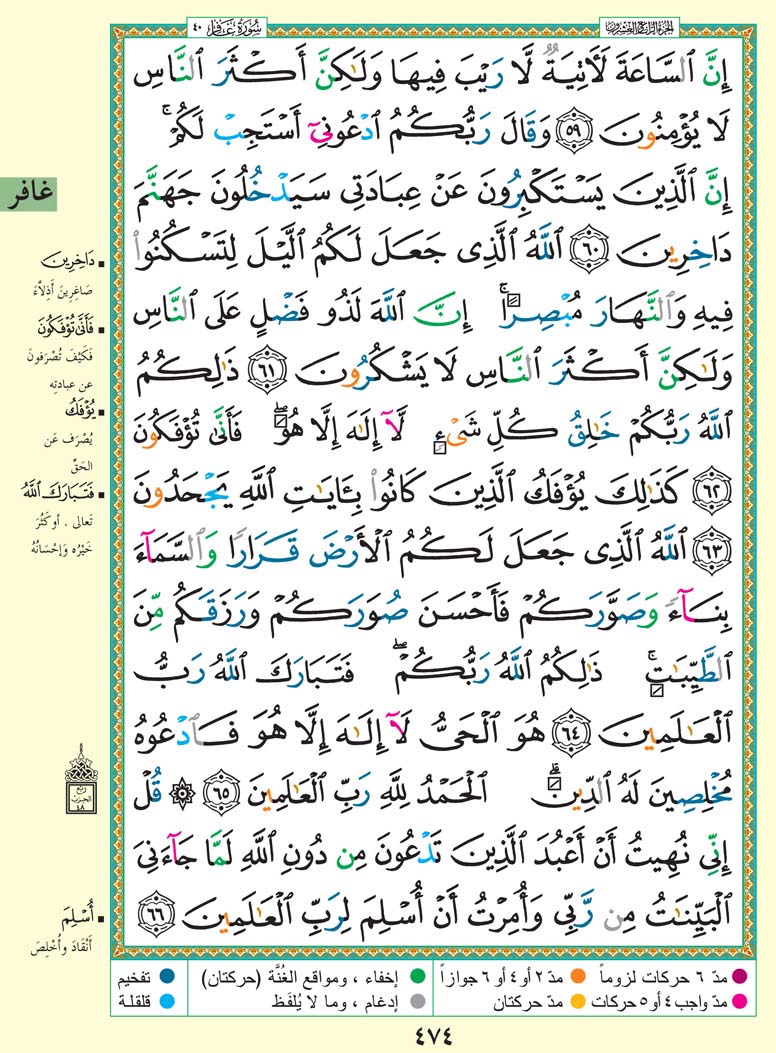 الجزء الرابع والعشرون
سُورَةُ غَافِرٍ ٤٠
إِنَّ ٱلسَّاعَةَ لَأٓتِيَةٌ لَّا رَيْبَ فِيهَا وَلَٰكِنَّ أَكْثَرَ ٱلنَّاسِ
لَا يُؤْمِنُونَ ٥٩ وَقَالَ رَبُّكُمُ ٱدْعُونِىٓ أَسْتَجِبْ لَكُمْ ۚ
إِنَّ ٱلَّذِينَ يَسْتَكْبِرُونَ عَنْ عِبَادَتِى سَيَدْخُلُونَ جَهَنَّمَ
دَاخِرِينَ ٦٠ ٱللَّهُ ٱلَّذِى جَعَلَ لَكُمُ ٱلَّيْلَ لِتَسْكُنُوا۟
فِيهِ وَٱلنَّهَارَ مُبْصِرًا ۚ إِنَّ ٱللَّهَ لَذُو فَضْلٍ عَلَى ٱلنَّاسِ
وَلَٰكِنَّ أَكْثَرَ ٱلنَّاسِ لَا يَشْكُرُونَ ٦١ ذَٰلِكُمُ
ٱللَّهُ رَبُّكُمْ خَٰلِقُ كُلِّ شَىْءٍ لَّآ إِلَٰهَ إِلَّا هُوَ ۖ فَأَنَّىٰ تُؤْفَكُونَ
٦٢ كَذَٰلِكَ يُؤْفَكُ ٱلَّذِينَ كَانُوا۟ بِـَٔايَٰتِ ٱللَّهِ يَجْحَدُونَ
٦٣ ٱللَّهُ ٱلَّذِى جَعَلَ لَكُمُ ٱلْأَرْضَ قَرَارًا وَٱلسَّمَآءَ
بِنَآءً وَصَوَّرَكُمْ فَأَحْسَنَ صُوَرَكُمْ وَرَزَقَكُم مِّنَ
ٱلطَّيِّبَٰتِ ۚ ذَٰلِكُمُ ٱللَّهُ رَبُّكُمْ ۖ فَتَبَارَكَ ٱللَّهُ رَبُّ
ٱلْعَٰلَمِينَ ٦٤ هُوَ ٱلْحَىُّ لَآ إِلَٰهَ إِلَّا هُوَ فَٱدْعُوهُ
مُخْلِصِينَ لَهُ ٱلدِّينَ ۗ ٱلْحَمْدُ لِلَّهِ رَبِّ ٱلْعَٰلَمِينَ ٦٥ ۞ قُلْ
إِنِّى نُهِيتُ أَنْ أَعْبُدَ ٱلَّذِينَ تَدْعُونَ مِن دُونِ ٱللَّهِ لَمَّا جَآءَنِىَ
ٱلْبَيِّنَٰتُ مِن رَّبِّى وَأُمِرْتُ أَنْ أُسْلِمَ لِرَبِّ ٱلْعَٰلَمِينَ ٦٦
غافر
دَاخِرِينَ
صَاغِرِينَ أَذِلَّاءَ
فَأَنَّىٰ تُؤْفَكُونَ
فَكَيْفَ تُصْرَفونَ
عن عبادتِه
يُؤْفَكُ
يُصْرَف عَن
الحَقِّ
فَتَبَارَكَ ٱللَّهُ
تَعالى . أو كَثُرَ
خَيْرُه وَإِحْسَانُهُ
ربع
الحزب
٤٨
أُسْلِمَ
أَنْقَادَ وأُخْلِصَ
مدّ ٦ حركات لزوماً
مدّ ٢ أو ٤ أو ٦ جوازاً
إخفاء ، ومواقع الغُنَّة (حركتان)
تفخيم
مدّ واجب ٤ أو ٥ حركات
مدّ حركتان
إدغام ، وما لا يُلفَظ
قلقلة
٤٧٤